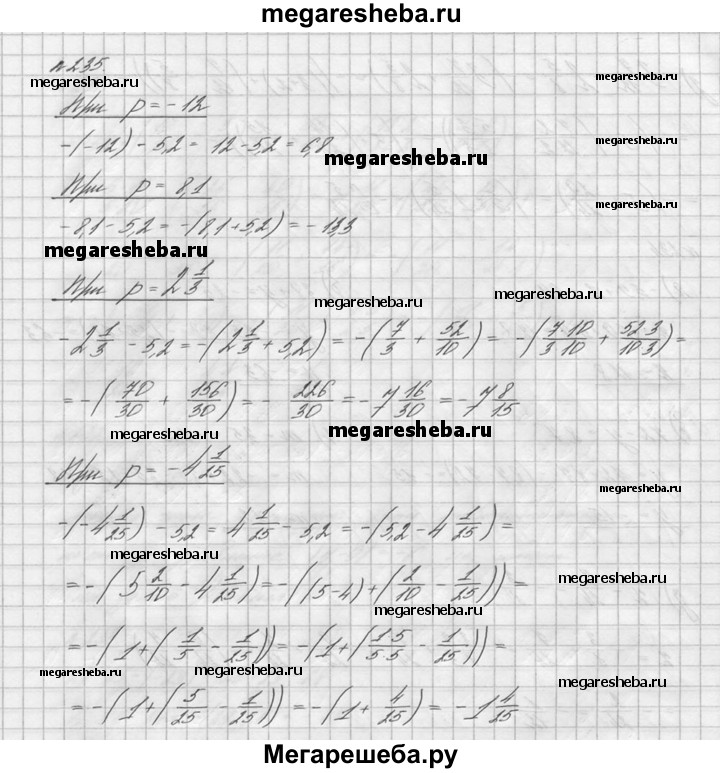 megaresheba.ru
№235
megaresheba.ru megaresheba.ru
При p = -12
-(-12) - 5,2 = 12 - 5,2 = 6,8
megaresheba.ru
megaresheba.ru
При p = 8,1
megaresheba.ru
-8,1 - 5,2 = -(8,1 + 5,2) = -13,3
megaresheba.ru
При p = 2 1/3
megaresheba.ru megaresheba.ru
-2 1/3 - 5,2 = -(2 1/3 + 5,2) = -(7/3 + 52/10) = -(7·10/3·10 + 52·3/10·3) =
= -(70/30 + 156/30) = - 226/30 = -7 16/30 = -7 8/15
megaresheba.ru megaresheba.ru
При p = -4 1/25
megaresheba.ru
-(-4 1/25) - 5,2 = 4 1/25 - 5,2 = -(5,2 - 4 1/25) =
megaresheba.ru
= -(5 2/10 - 4 1/25) = -((5-4) + (2/10 - 1/25)) =
megaresheba.ru
megaresheba.ru
= -(1 + (1/5 - 1/25)) = -(1 + (1·5/5·5 - 1/25)) =
megaresheba.ru megaresheba.ru megaresheba.ru
= -(1 + (5/25 - 1/25)) = -(1 + 4/25) = -1 4/25
Мегарешеба.ру